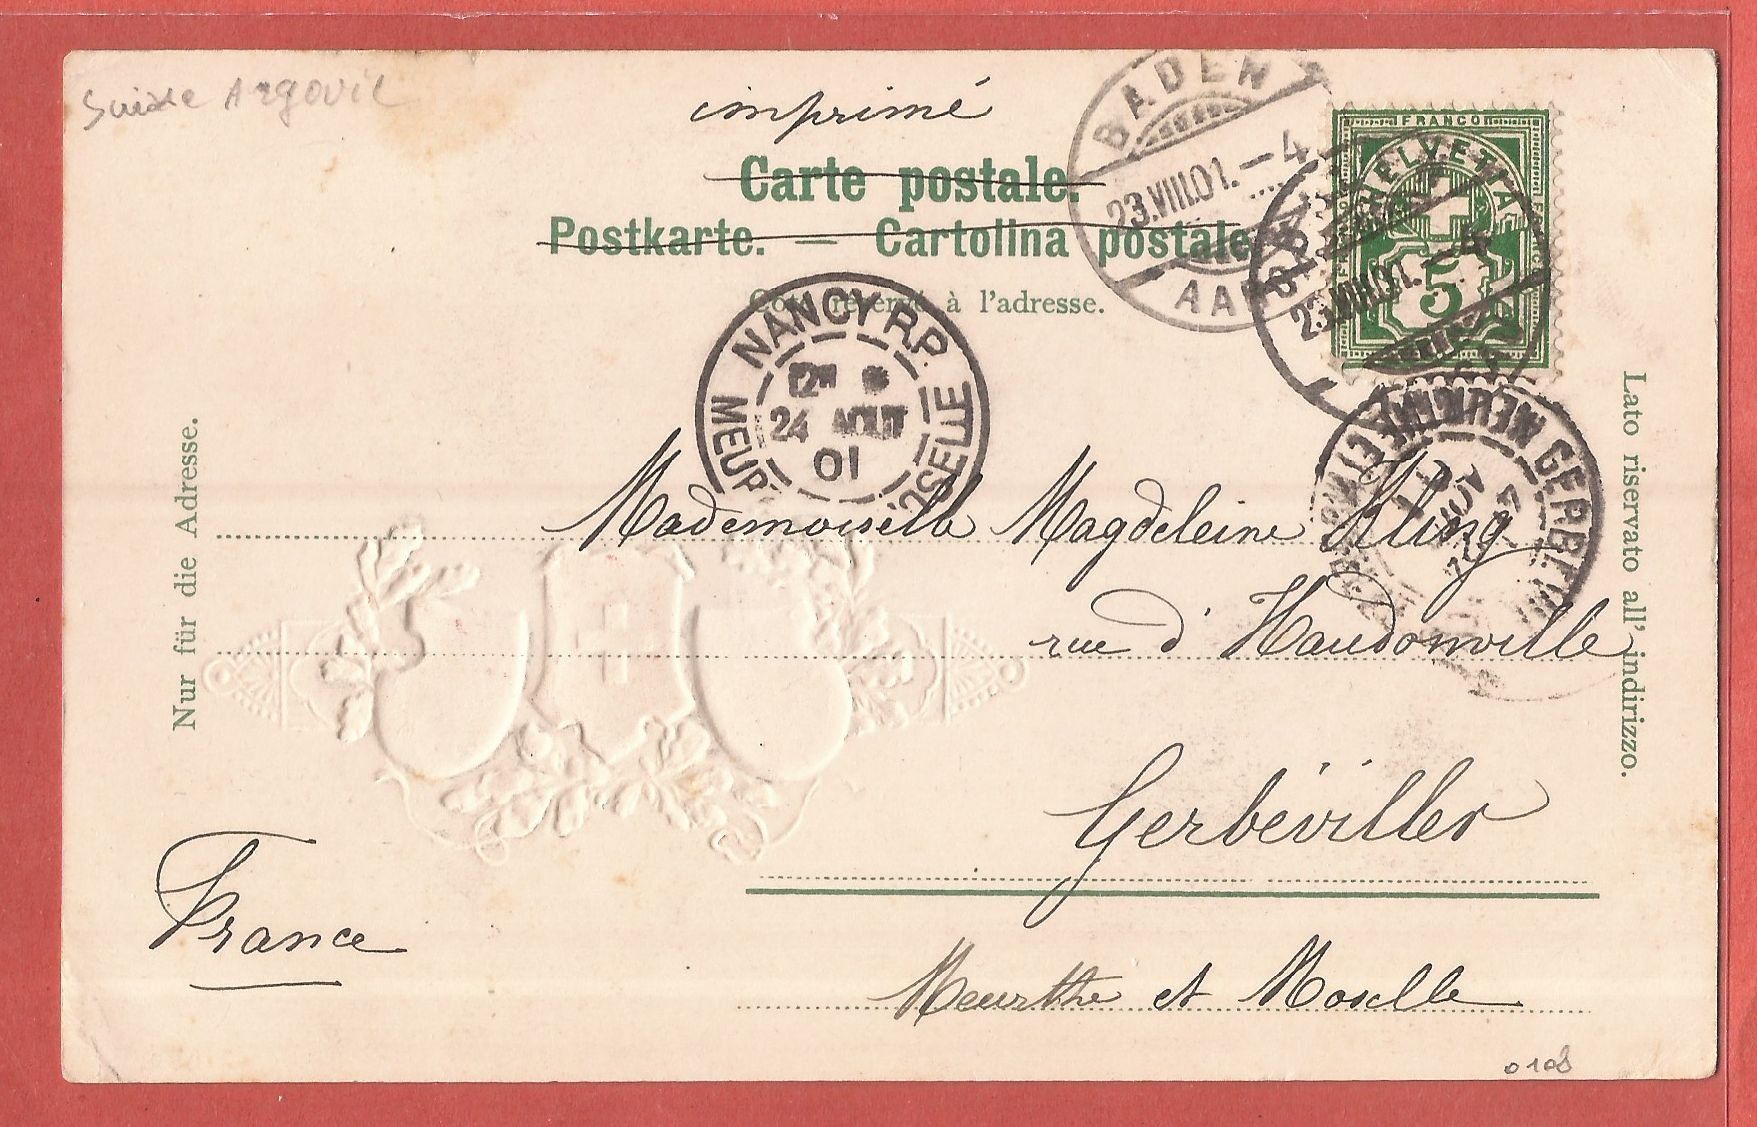 Suisse Argovie
imprimé
Carte postale.
Postkarte. — Cartolina postale
Côté réservé à l'adresse.
BADEN
23.VIII.01.–4
AAR
FRANCO
HELVETIA
5
23.VIII.01.–4
NANCY R.P.
12H
24 AOUT
01
MEUR OSELLE
GERBEVI
Nur für die Adresse.
Lato riservato all' indirizzo.
Mademoiselle Magdeleine Kling
rue d'Haudonville
Gerbéviller
France
Meurthe et Moselle
0108